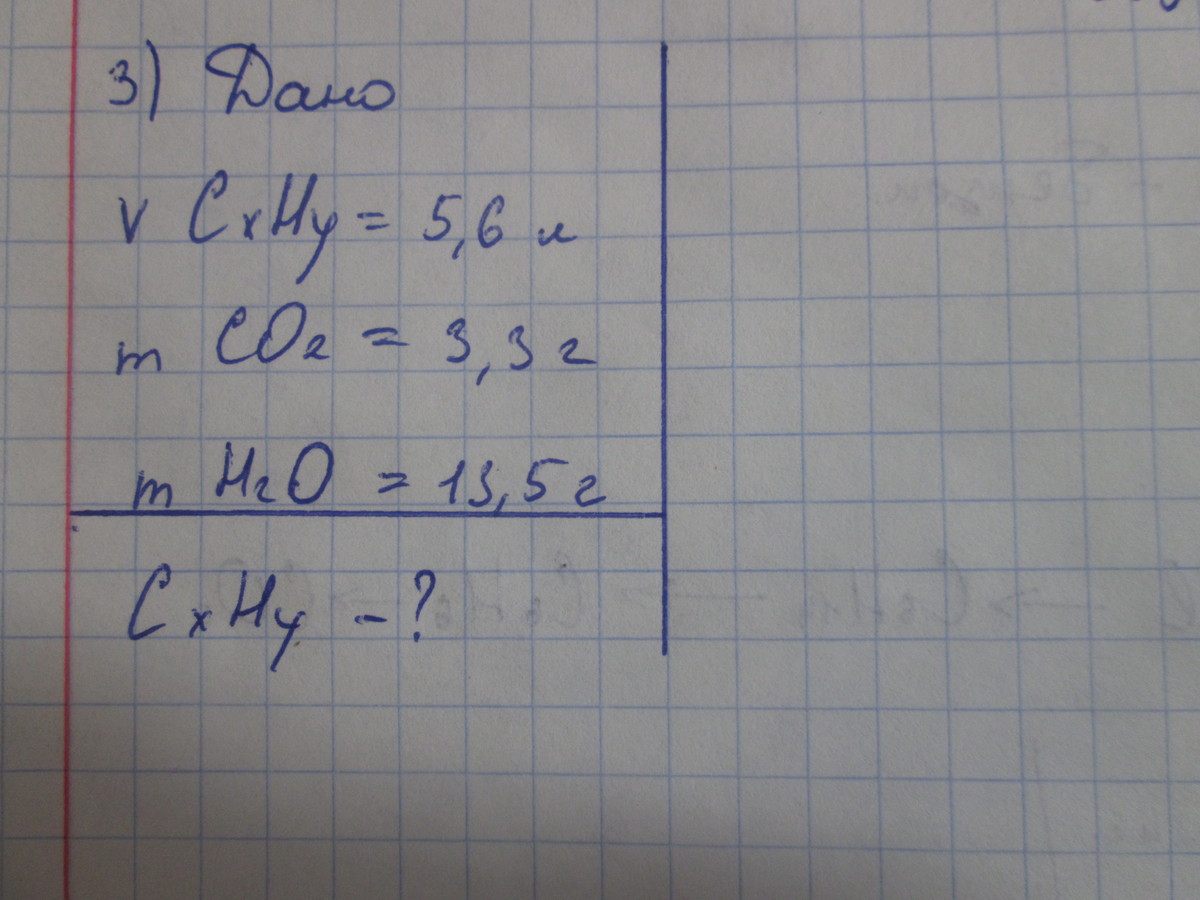 3) Дано
V CxHy = 5,6 л
m CO2 = 3,3 г
m H2O = 13,5 г
CxHy - ?